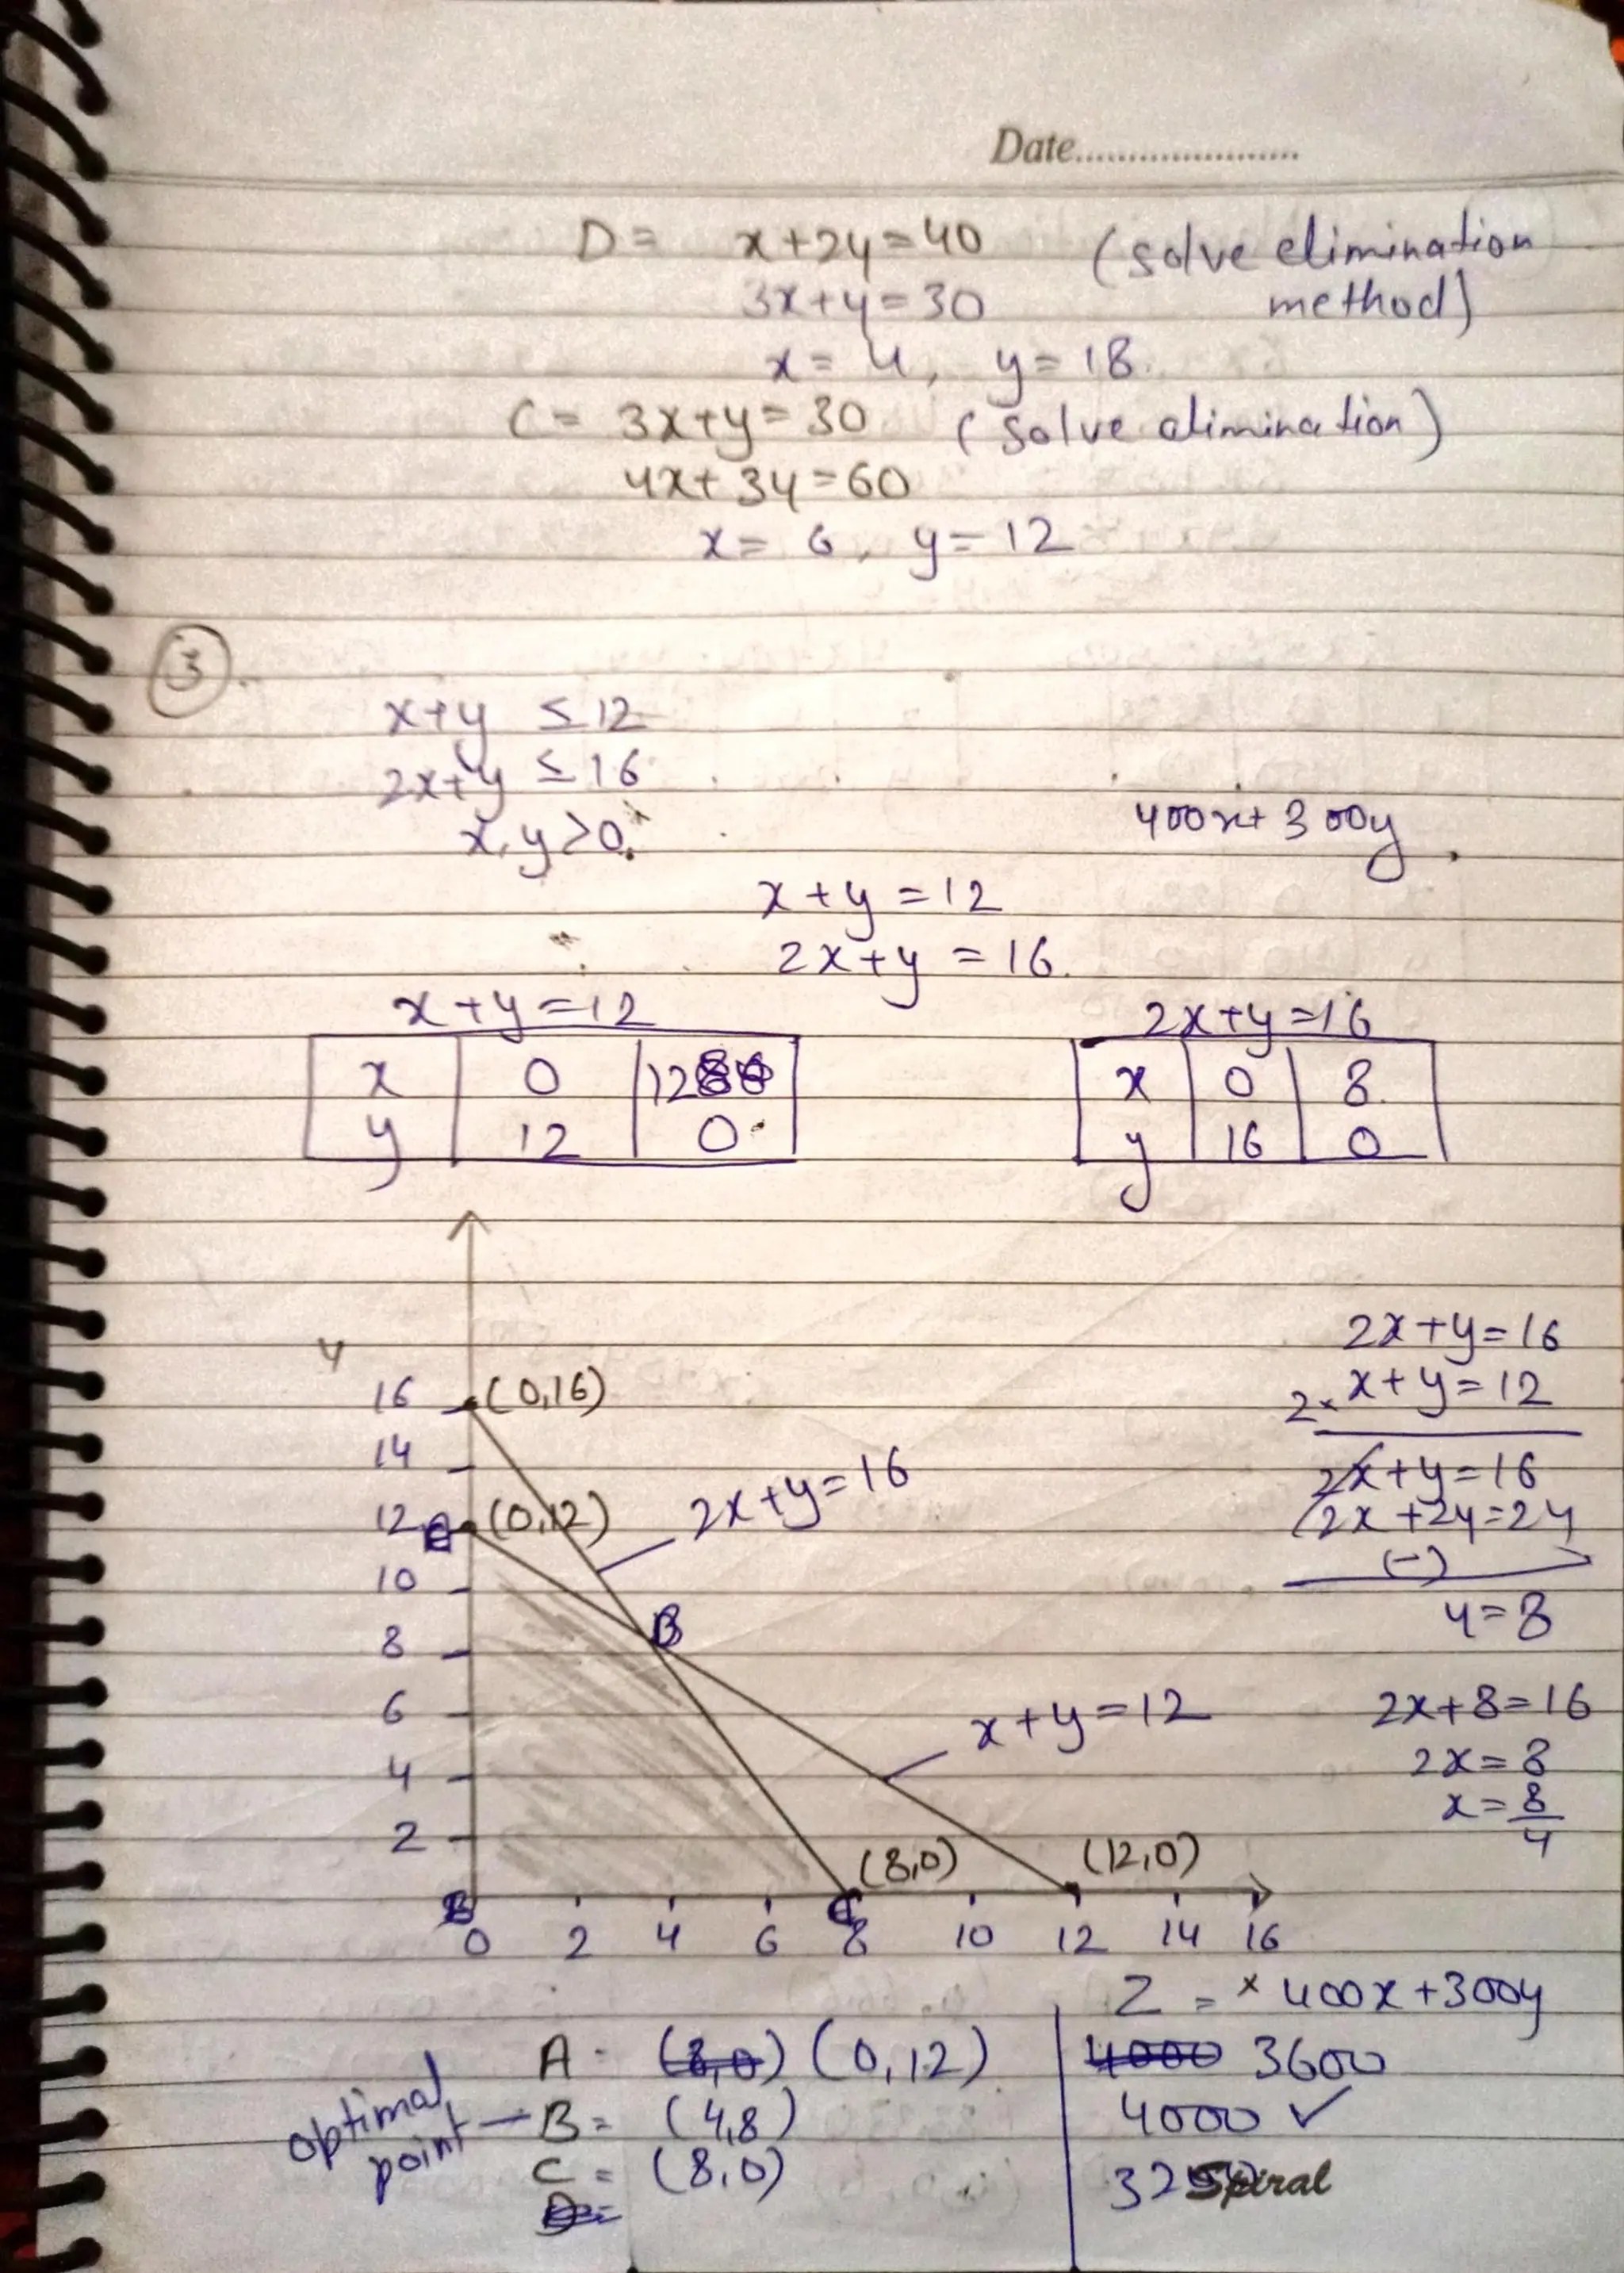 Date......................
D = x+2y=40 (solve elimination
3x+y=30 method)
x= 4, y=18.
C = 3x+y=30 (solve elimination)
4x+3y=60
x= 6, y=12
3.
x+y ≤ 12
2x+y ≤ 16
x, y>0.
400x+300y
x+y=12
2x+y=16.
x+y=12 2x+y=16
x 0 12
y 12 0
x 0 8
y 16 0
y
16 (0,16)
14
12 (0,12)
10
8
6
4
2
2x+y=16
B
x+y=12
(8,0) (12,0)
C
0 2 4 6 8 10 12 14 16
2x+y=16
2× x+y=12
2x+y=16
2x+2y=24
(-)
y=8
2x+8=16
2x=8
x=8/4
Z = × 400x+300y
A = (8,0) (0,12) 4000 3600
optimal point — B= (4,8) 4000 ✓
C = (8,0)
D=
Spiral